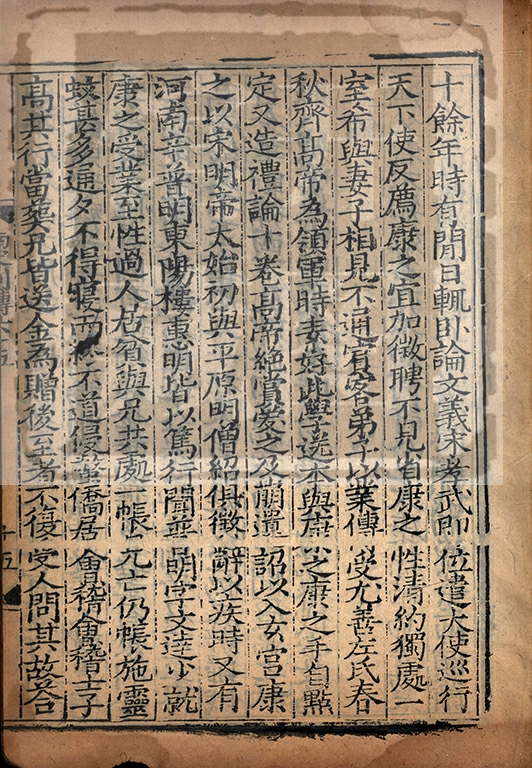 十餘年時有閒日輒卧論文義宋孝武即位遣大使巡行
天下使反薦康之宜加徵聘不見省康之性清約獨處一
室希與妻子相見不通賓客弟子以業傳受尤善左氏春
秋齊高帝為領軍時素好此學送本與康之康之手自點
定又造禮論十卷高帝絶賞愛之及崩遺詔以入玄宮康
之以宋明帝太始初與平原明僧紹俱徵辭以疾時又有
河南辛普明東陽樓惠明皆以篤行聞普明字文達少就
康之受業至性過人居貧與兄共處一帳兄亡仍帳施靈
蚊甚多通夕不得寢而終不道侵螫僑居會稽會稽士子
高其行當葬兄皆送金為贈後至者不復受人問其故荅